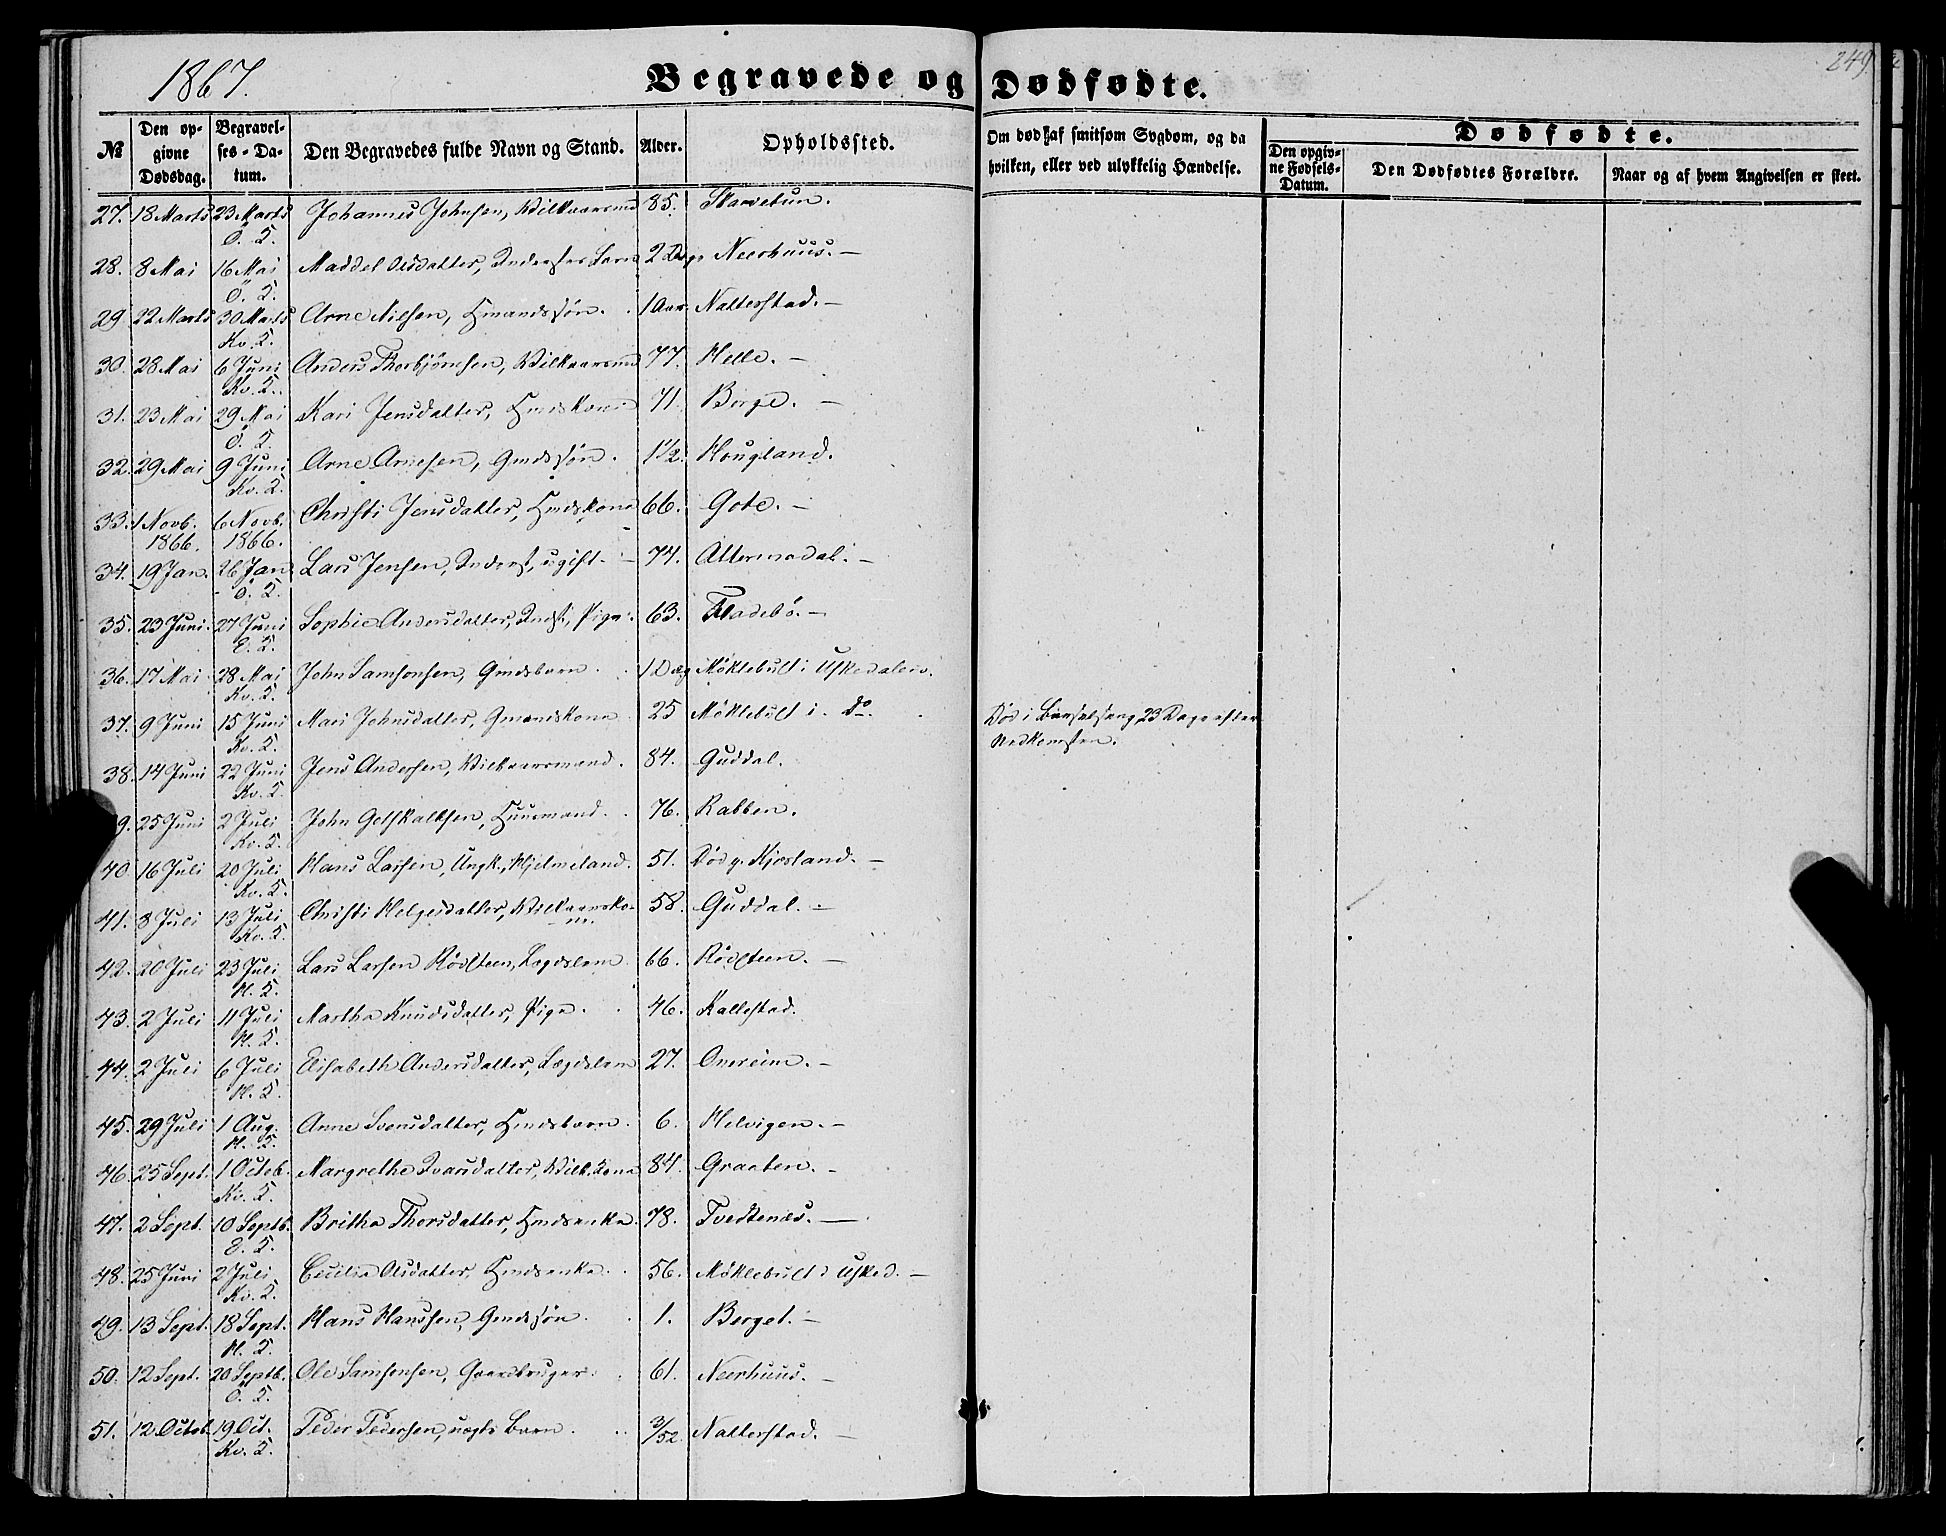 1867.
Begravede og Dødfødte.
249.
№
Den opgivne Dødsdag.
Begravelses-Datum.
Den Begravedes fulde Navn og Stand.
Alder.
Opholdssted.
Om død af smitsom Sygdom, og da hvilken, eller ved ulykkelig Hændelse.
Dødfødte.
Den opgivne Fødsels-Datum.
Den Dødfødtes Forældre.
Naar og af hvem Angivelsen er skeet.
27. 18 Marts 23 Marts Johannes Johnsen, Vilkaarsmd 85. Skarvetun.
Ö. K.
28. 8 Mai 16 Mai Maddel Olsdatter, Inderster Barn 2 Dage Neerhuus. –
Ö. K.
29 22 Marts 30 Marts Arne Nilsen, Hmandssøn. 1 Aar. Natterstad. –
Kv. K.
30. 28 Mai 6 Juni Anders Thorbjörnsen, Vilkaarsmd 77. Helle. –
Kv. K.
31. 23 Mai 29 Mai Kari Jensdatter, Hmdskone 71. Borge. –
Ö. K.
32. 29 Mai 9 Juni Arne Arnesen, Gmdssøn. 1 1/2. Hougland.
Kv. K.
33. 1 Novb. 6 Novb. Christi Jensdatter, Hmdskone 66. Gote. –
1866. 1866.
34. 19 Jan. 26 Jan Lars Jensen, Inderst, ugift. – 74. Attermadal. –
Ö. K.
35. 23 Juni. 27 Juni Sophie Andersdatter, Indst, Pige. 63. Fladebö. –
E. K.
36. 17 Mai 28 Mai John Samsonsen, Gmdsbarn 1 Dag Møklebust i Uskedalen.
Kv. K.
37. 9 Juni 15 Juni Mari Johnsdatter, Gmandskone 25 Møklebust i do. Død i Barselseng, 23 Dage efter
Kv. K. Nedkomsten.
38. 14 Juni 22 Juni Jens Andersen, Vilkaarsmand. 84. Guddal.
Kv. K.
9. 25 Juni 2 Juli John Gotskalksen, Huusmand. 76. Rabben.
Kv. K.
40 16 Juli 20 Juli Hans Larsen, Ungk., Hjelmeland. 51. Død p. Kjærland. –
Kv. K.
41. 8 Juli 13 Juli Christi Helgesdatter, Vilkaarsko- 58. Guddal. –
Kv. K. ne.
42. 20 Juli 23 Juli Lars Larsen Rödsteen, Lægdslem 66. Rödsteen. –
H. K.
43. 2 Juli 11 Juli Martha Knudsdatter, Pige. 46. Kallestad.
H. K.
44. 2 Juli 6 Juli Elisabeth Andersdatter, Lægdslem 27. Omreim. –
H. K.
45. 29 Juli 1 Aug. Anne Svensdatter, Hmdsbarn. 6. Helvigen. –
H. K.
46. 25 Sept. 1 Octob. Margrethe Ivarsdatter, Vilk.kone 84. Graaten. –
Kv. K.
47. 2 Sept. 10 Septb. Britha Thorsdatter, Hmdsenke. 78. Tvedtenæs. –
E. K.
48. 25 Juni 2 Juli Cecilia Olsdatter, Hmdsenke. 56. Møklebust i Usked. –
Kv. K.
49. 13 Sept. 18 Sept. Hans Hanssen, Gmdssøn 1. Berget. –
H. K.
50. 12 Sept. 20 Septb. Ole Samsonsen, Gaardbruger. 61. Neerhuus. –
Ö. K.
51. 12 Octob. 19 Oct. Peder Pedersen, uægte Barn. 3/52. Natterstad. –
Kv. K.